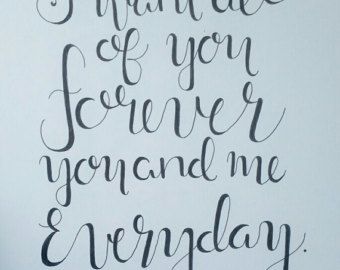 I want all
of you
forever
you and me
Everyday.